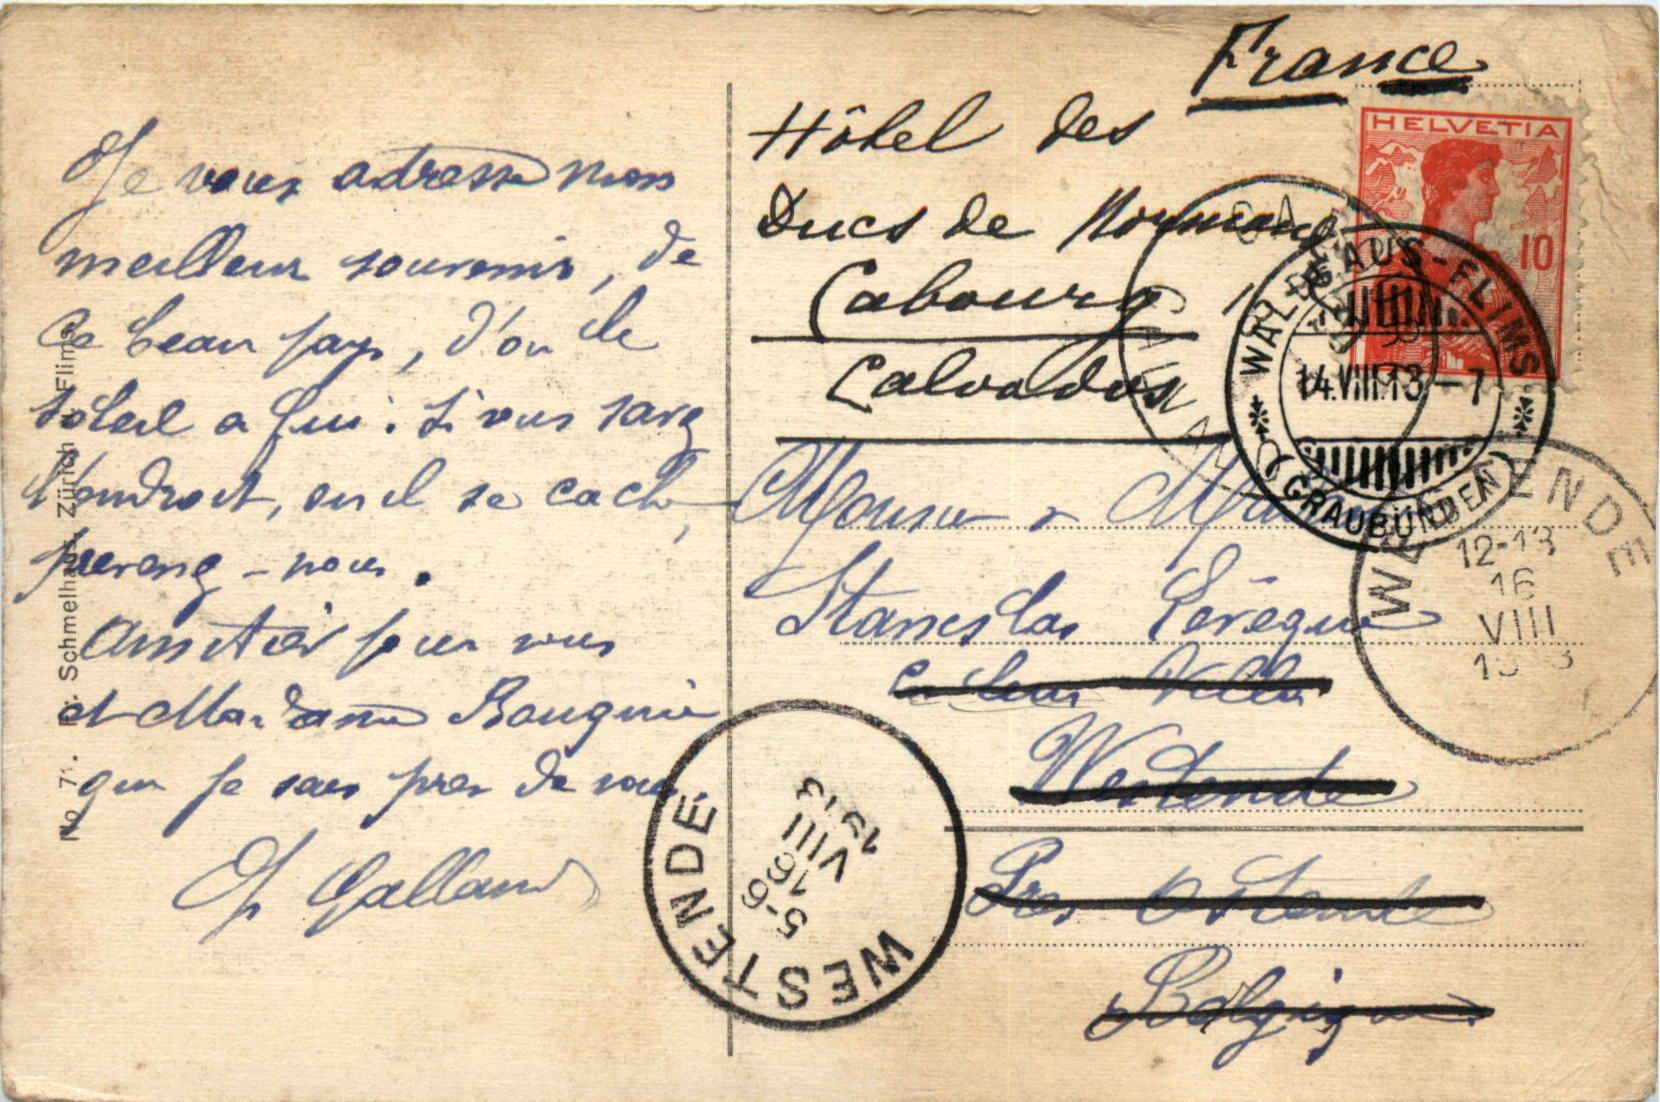 Je vous adresse mon
meilleur souvenir, de
ce beau pays, d'ou le
soleil a fui. Si vous savez
l'endroit, ou il se cache,
prevenez-nous.
Amitiés pour vous
et Madame
que je sais près de vous.
Galland
No 7 . Schmelhaus, Zürich Flims
France
Hôtel des
Ducs de Normandie
Cabourg
Calvados
Monsieur &
Stanislas Lévèque
en leur Villa
Westende
Près Ostende
Belgique
HELVETIA
10
WALDHAUS-FLIMS
14.VIII.13.-7
(GRAUBÜNDEN)
WESTENDE
12-13
16
VIII
1913
WESTENDE
5-6
16
VIII
1913